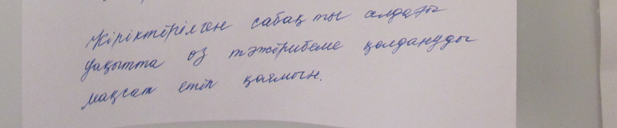 Кіріктірілген сабақты алдағы
уақытта өз тәжірибеме қолдануды
мақсат етіп қоямын.